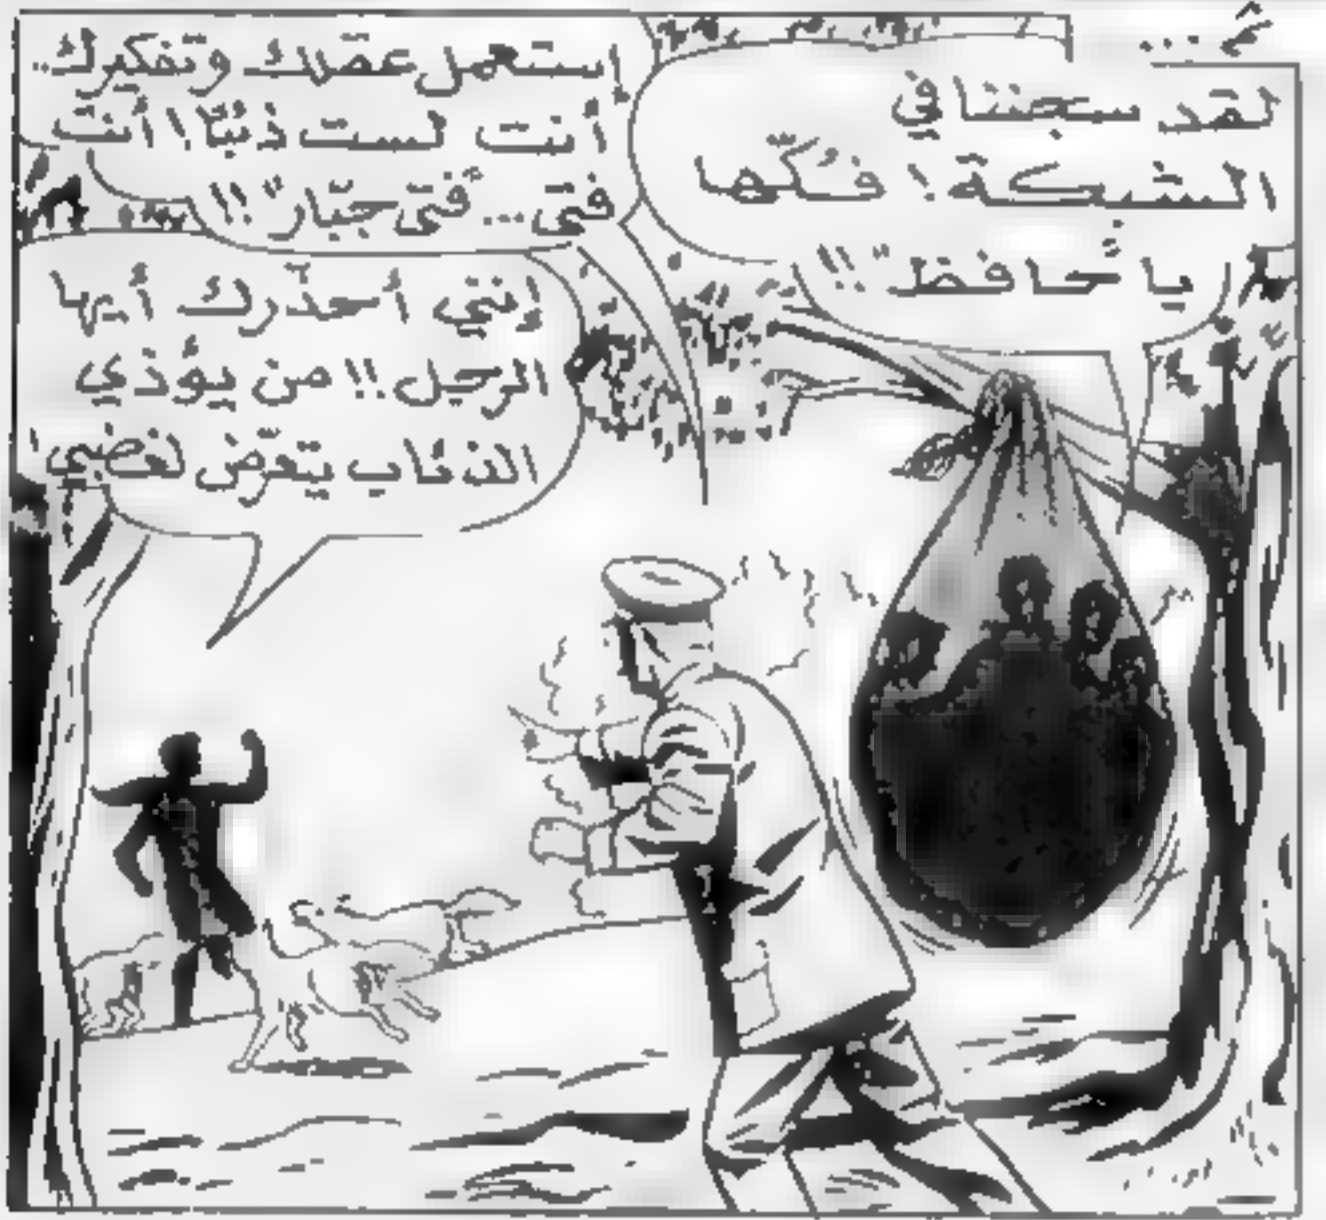 لقد سجننا في
الشبكة! فكّها
يا حافظ"!!
إستعمل عقلك وتفكيرك..
أنت لست ذئبًا! أنت
فتى... "فتى جبّار"!!
إنني أحذّرك أيها
الرجل!! من يؤذي
الذئاب يتعرّض لغضبي!